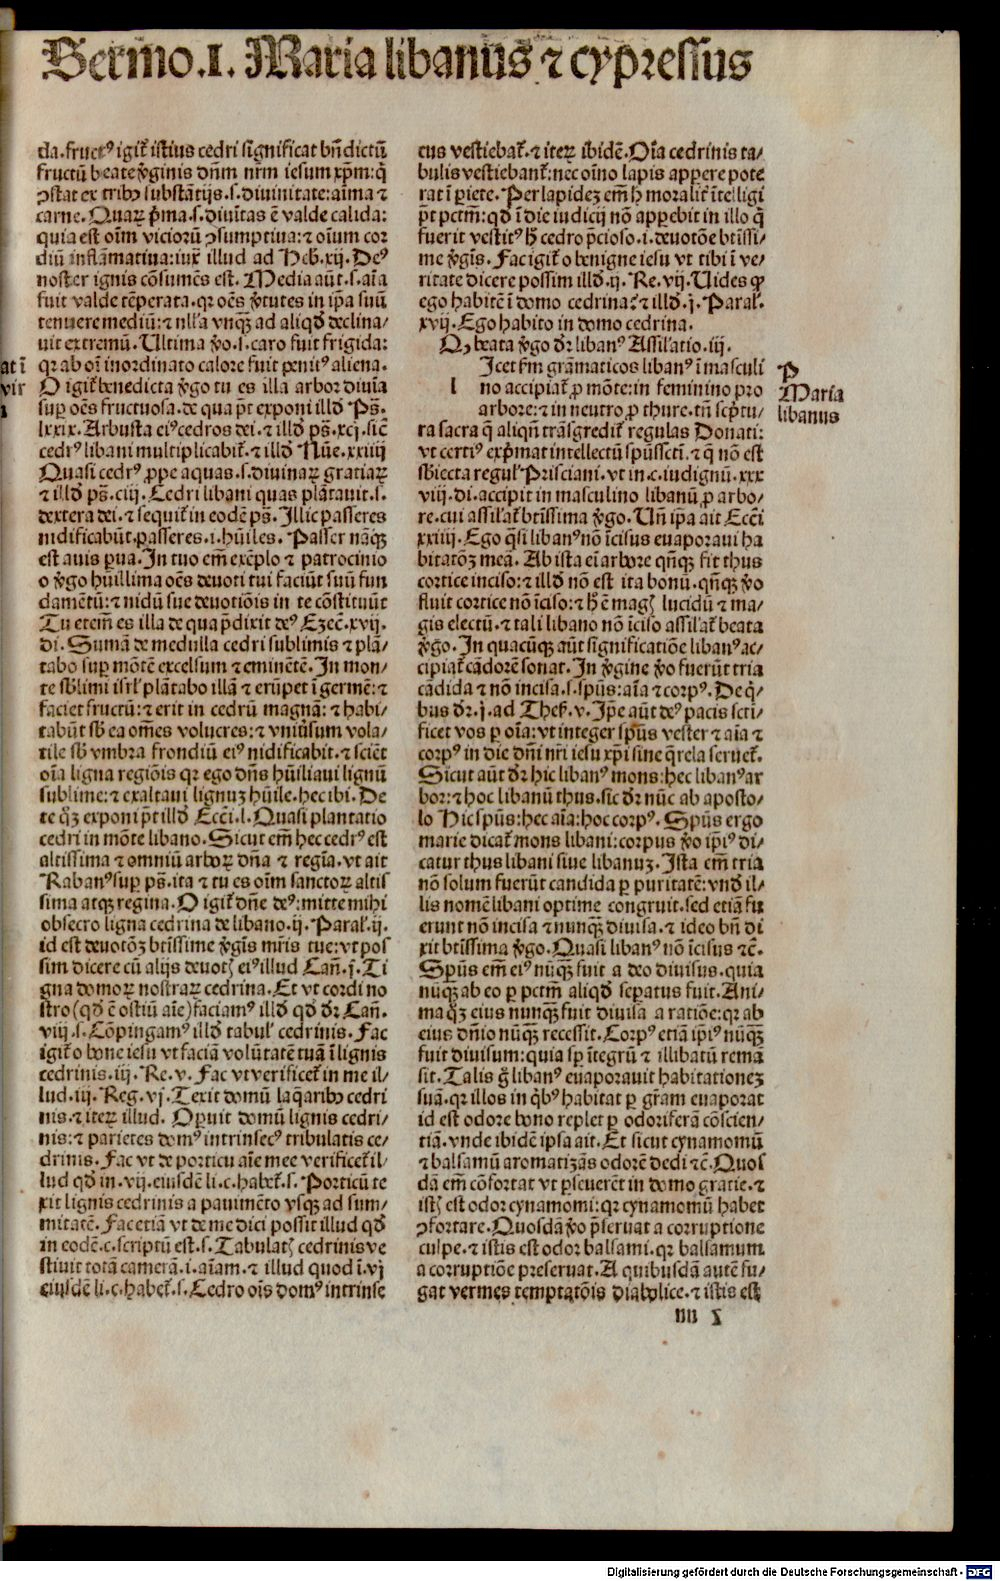 Sermo .I. Maria libanus ⁊ cypressus
da. fructꝰ igit̃ istius cedri significat bn̄dictū
fructū beate v̄ginis dn̄m nrm̄ iesum xp̄m: q̄
ꝯstat ex tribꝰ substātijs .s. diuinitate: aīma ⁊
carne. Quaꝝ p̄ma .s. diuītas ē valde calida:
quia est oīm viciorū ꝯsumptiua: ⁊ oīum cor
diū inflāmatiua: iux̄ illud ad Heb̄. xij. Deꝰ
noster ignis cōsumēs est. Media aūt .s. aīa
fuit valde tēperata. qr oēs v̄tutes in ip̄a suū
tenuere mediū: ⁊ nll̄a vnqꝫ ad aliqd̄ declina⸗
uit extremū. Ultima v̄o .s. caro fuit frigida:
qr ab oī inordinato calore fuit penitꝰ aliena.
O igit̃ benedicta v̄go tu es illa arbor diuīa
suꝑ oēs fructuosa. de qua p̄t exponi illd̄ Ps̄.
lxxix. Arbusta eiꝰ cedros dei. ⁊ illd̄ ps̄. xcj. sic̄
cedrꝰ libani multiplicabit̃. ⁊ illd̄ Nūe. xxiiij
Quasi cedrꝰ ꝓpe aquas .s. diuinaꝝ gratiaꝝ
⁊ illd̄ ps̄. ciij. Cedri libani quas plātauit .s.
dextera dei. ⁊ sequit̃ in eodē ps̄. Illic passeres
nidificabūt. passeres .i. hūiles. Passer nāqꝫ
est auis ꝑua. In tuo em̄ exēplo ⁊ patrocinio
o v̄go hūillima oēs deuoti tui faciūt suū fun
damētū: ⁊ nidū sue deuotiōis in te cōstituūt
Tu etem̄ es illa de qua p̄dixit deꝰ Ezec̄. xvij.
di. Sumā de medulla cedri sublimis ⁊ plā⸗
tabo suꝑ mōtē excelsum ⁊ eminētē. In mon⸗
te sb̄limi isrl̄ plātabo illā ⁊ erūpet ī germē: ⁊
faciet fructū: ⁊ erit in cedrū magnā: ⁊ habi⸗
tabūt sb̄ ea om̄es volucres: ⁊ vniūsum vola⸗
tile sb̄ vmbra frondiū eiꝰ nidificabit. ⁊ sciēt
oīa ligna regiōis qr ego dn̄s hūiliaui lignū
sublime: ⁊ exaltaui lignuꝫ hūile. hec ibi. De
te qꝫ exponi p̄t illd̄ Ecc̄i. l. Quasi plantatio
cedri in mōte libano. Sicut em̄ hec cedrꝰ est
altissima ⁊ omniū arboꝝ dn̄a ⁊ regīa. vt ait
Rabanꝰ suꝑ ps̄. ita ⁊ tu es oīm sanctoꝝ altis
sima atqꝫ regina. O igit̃ dn̄e deꝰ: mitte mihi
obsecro ligna cedrina de libano. ij. Paral̄. ij.
id est deuotōꝫ btīssime v̄gīs mr̄is tue: vt pos
sim dicere cū alijs deuotꝭ eiꝰ illud Can̄. j. Ti
gna domoꝝ nostraꝝ cedrina. Et vt cordi no
stro (qd̄ ē ostiū aīe) faciamꝰ illd̄ qd̄ dr̄ Can̄.
viij .s. Cōpingamꝰ illd̄ tabul̄ cedrinis. Fac
igit̃ o bone iesu vt faciā volūtatē tuā ī lignis
cedrinis. iij. Re. v. Fac vt verificet̃ in me il⸗
lud. iij. Reg. vj. Texit domū laq̄aribꝰ cedri
nis. ⁊ iteꝝ illud. Operuit domū lignis cedri⸗
nis: ⁊ parietes domꝰ intrinsecꝰ tribulatis ce⸗
drinis. Fac vt de porticu aīe mee verificet̃ il⸗
lud qd̄ in .vij. eiusdē li. c. habet̃ .s. Porticū te
xit lignis cedrinis a pauimēto vsqꝫ ad sum⸗
mitatē. Fac etiā vt de me dici possit illud qd̄
in eodē .c. scriptū est .s. Tabulatꝭ cedrinis ve
stiuit totā camerā .i. aīam. ⁊ illud quod ī .vj
eiusdē li. c. habet̃ .s. Cedro oīs domꝰ intrinse
cus vestiebat̃. ⁊ iteꝝ ibidē. Oīa cedrinis ta⸗
bulis vestiebant̃: nec oīno lapis apꝑere pote
rat ī ꝑiete. Per lapidez em̄ hꝭ moralit̃ ītelligi
p̄t pctm̄: qd̄ ī die iudicij nō apꝑebit in illo q̄
fuerit vestitꝰ hꝭ cedro p̄cioso .i. deuotōe btīssi⸗
me v̄gīs. Fac igit̃ o benigne iesu vt tibi ī ve⸗
ritate dicere possim illd̄. ij. Re. vij. Uides ꝙ
ego habitē ī domo cedrina? ⁊ illd̄. j. Paral̄.
xvij. Ego habito in domo cedrina.
Qꝫ beata v̄go dr̄ libanꝰ Assil̄atio .iij.
lIcet sm̄ grāmaticos libanꝰ ī masculi
no accipiat̃ ꝓ mōte: in feminino pro
arbore: ⁊ in neutro ꝓ thure. tn̄ scp̄tu⸗
ra sacra q̄ aliqn̄ trāsgredit̃ regulas Donati:
vt certiꝰ exp̄mat intellectū sp̄ussctī. ⁊ q̄ nō est
sb̄iecta regul̄ Prisciani. vt in .c. indignū. xxx
viij. di. accipit in masculino libanū ꝓ arbo⸗
re. cui assil̄at̃ btīssima v̄go. Un̄ ip̄a ait Ecc̄i
xxiiij. Ego q̄si libanꝰ nō īcisus euaporaui ha
bitatōꝫ meā. Ab ista eī arbore qn̄qꝫ fit thus
cortice inciso: ⁊ illd̄ nō est ita bonū. qn̄qꝫ v̄o
fluit cortice nō īciso: ⁊ hꝭ ē magꝭ lucidū ⁊ ma⸗
gis electū. ⁊ tali libano nō īciso assil̄at̃ beata
v̄go. In quacūqꝫ aūt significatiōe libanꝰ ac⸗
cipiat̃ cādorē sonat. In v̄gine v̄o fuerūt tria
cādida ⁊ nō incisa .s. sp̄us: aīa ⁊ corpꝰ. De q̄⸗
bus dr̄. j. ad Thes̄. v. Ip̄e aūt deꝰ pacis scti⸗
ficet vos ꝑ oīa: vt integer sp̄us vester ⁊ aīa ⁊
corpꝰ in die dn̄i nr̄i iesu xp̄i sine q̄rela seruet̃.
Sicut aūt dr̄ hic libanꝰ mons: hec libanꝰ ar
bor: ⁊ hoc libanū thus. sic dr̄ nūc ab aposto⸗
lo Hic sp̄us: hec aīa: hoc corpꝰ. Sp̄us ergo
marie dicat̃ mons libani: corpus v̄o ip̄iꝰ di⸗
catur thus libani siue libanuꝫ. Ista em̄ tria
nō solum fuerūt candida ꝑ puritatē: vnd̄ il⸗
lis nomē libani optime congruit. sed etiā fu
erunt nō incisa ⁊ nunqꝫ diuisa. ⁊ ideo bn̄ di
xit btīssima v̄go. Quasi libanꝰ nō īcisus ⁊c̄.
Sp̄us em̄ eiꝰ nūqꝫ fuit a deo diuisus. quia
nūqꝫ ab eo ꝑ pctm̄ aliqd̄ seꝑatus fuit. Ani⸗
ma qꝫ eius nunqꝫ fuit diuisa a ratiōe: qr ab
eius dn̄io nūqꝫ recessit. Corpꝰ etiā ip̄iꝰ nūqꝫ
fuit diuisum: quia sp̄ ītegrū ⁊ illibatū remā
sit. Talis g̊ libanꝰ euaporauit habitationeꝫ
suā. qr illos in q̄bꝰ habitat ꝑ gr̄am euaporat
id est odore bono replet ꝑ odoriferā cōscien⸗
tiā. vnde ibidē ipsa ait. Et sicut cynamomū
⁊ balsamū aromatizās odorē dedi ⁊c̄. Quos
dā em̄ cōfortat vt ꝑseuerēt in domo gratie. ⁊
istꝭ est odor cynamomi: qr cynamomū habet
ꝯfortare. Quosdā v̄o p̄seruat a corruptione
culpe. ⁊ istis est odor balsami. qr balsamum
a corruptiōe preseruat. A quibusdā autē fu⸗
gat vermes temptatōis diabolice. ⁊ istis est
P
Maria
libanus
at ī
vir